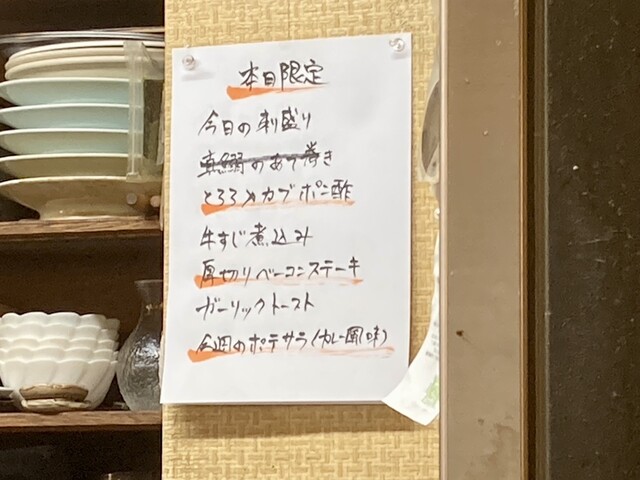 本日限定
今日の刺盛り
真鰯のあて巻き
とろろ入カブポン酢
牛すじ煮込み
厚切りベーコンステーキ
ガーリックトースト
今週のポテサラ(カレー風味)